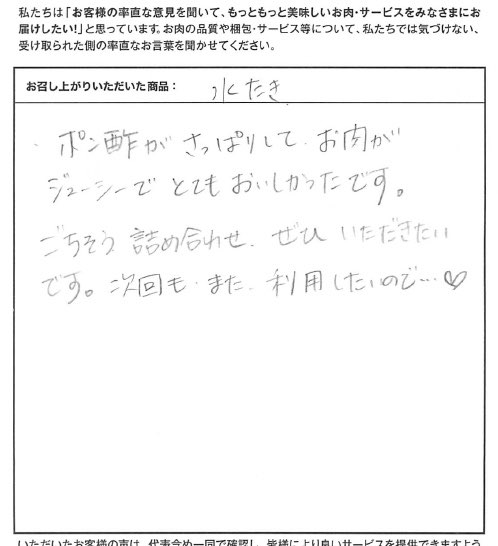 私たちは「お客様の率直な意見を聞いて、もっともっと美味しいお肉・サービスをみなさまにお
届けしたい!」と思っています。お肉の品質や梱包・サービス等について、私たちでは気づけない、
受け取られた側の率直なお言葉を聞かせてください。
お召し上がりいただいた商品： 水たき
ポン酢が さっぱりして、お肉が
ジューシーで とても おいしかったです。
ごちそう 詰め合わせ、ぜひ いただきたい
です。次回も、また、利用したいので…♡
いただいたお客様の声は、代表含め一同で確認し、皆様により良いサービスを提供できますよう